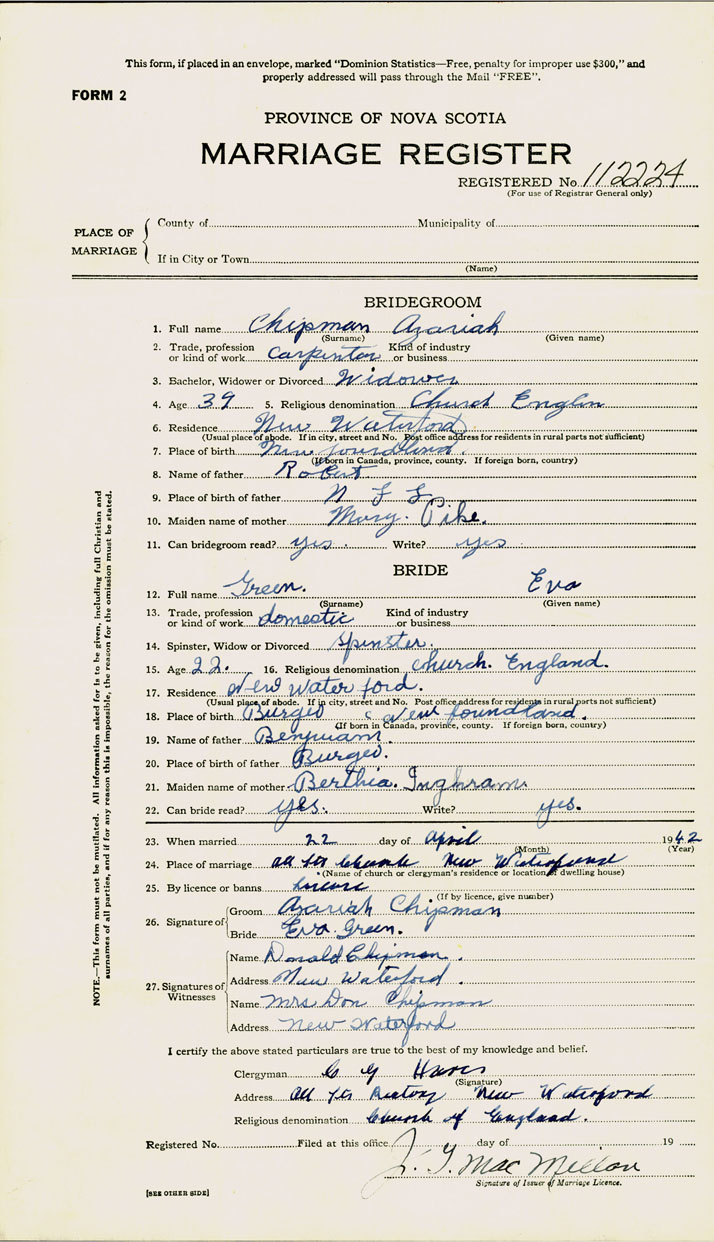 This form, if placed in an envelope, marked "Dominion Statistics—Free, penalty for improper use $300," and
properly addressed will pass through the Mail "FREE".
FORM 2
PROVINCE OF NOVA SCOTIA
MARRIAGE REGISTER
REGISTERED No. 112224
(For use of Registrar General only)
PLACE OF MARRIAGE
County of Municipality of
If in City or Town
(Name)
BRIDEGROOM
1. Full name Chipman Azariah
(Surname) (Given name)
2. Trade, profession or kind of work Carpentor Kind of industry or business
3. Bachelor, Widower or Divorced Widower
4. Age 39 5. Religious denomination Church Englin
6. Residence New Waterford
(Usual place of abode. If in city, street and No. Post office address for residents in rural parts not sufficient)
7. Place of birth
(If born in Canada, province, county. If foreign born, country)
8. Name of father Robert
9. Place of birth of father N F L
10. Maiden name of mother Mary. Pike.
11. Can bridegroom read? yes. Write? yes
BRIDE
12. Full name Green. Eva
(Surname) (Given name)
13. Trade, profession or kind of work domestic Kind of industry or business
14. Spinster, Widow or Divorced Spinster.
15. Age 22. 16. Religious denomination church. England.
17. Residence New Water ford.
(Usual place of abode. If in city, street and No. Post office address for residents in rural parts not sufficient)
18. Place of birth Burgeo New foundland.
(If born in Canada, province, county. If foreign born, country)
19. Name of father Benjmam.
20. Place of birth of father Burgeo.
21. Maiden name of mother Berthia. Inghram
22. Can bride read? yes. Write? yes.
23. When married 22 day of April 1942
(Month) (Year)
24. Place of marriage All Sts Church New Waterford
(Name of church or clergyman's residence or location of dwelling house)
25. By licence or banns License
(If by licence, give number)
26. Signature of
Groom Azariah Chipman
Bride Eva Green.
27. Signatures of Witnesses
Name Donald Chipman.
Address New Waterford.
Name Mrs Don Chipman
Address New Waterford
I certify the above stated particulars are true to the best of my knowledge and belief.
Clergyman C G
(Signature)
Address All Sts Rectory New Waterford
Religious denomination Church of England.
Registered No. Filed at this office day of 19
J. G. MacMillan
Signature of Issuer of Marriage Licence.
[SEE OTHER SIDE]
NOTE.—This form must not be mutilated. All information asked for is to be given, including full Christian and
surnames of all parties, and if for any reason this is impossible, the reason for the omission must be stated.